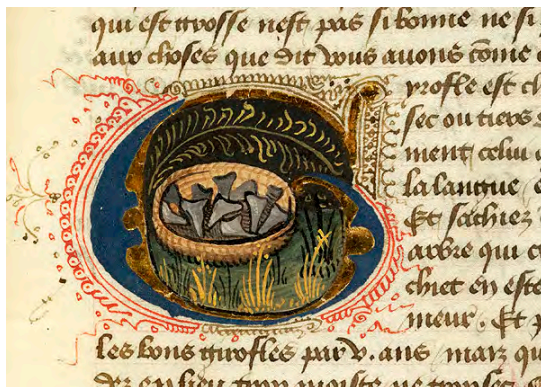 qui est grosse nest pas si bonne ne si
aux choses que dit vous auons cōme
yrofle est
sec ou tiers
ment celui
la langue
Et sachiez
arbre qui
chiet en este
meur. Et
les bons girofles par v. ans maiz
en lieu trop moiste ne